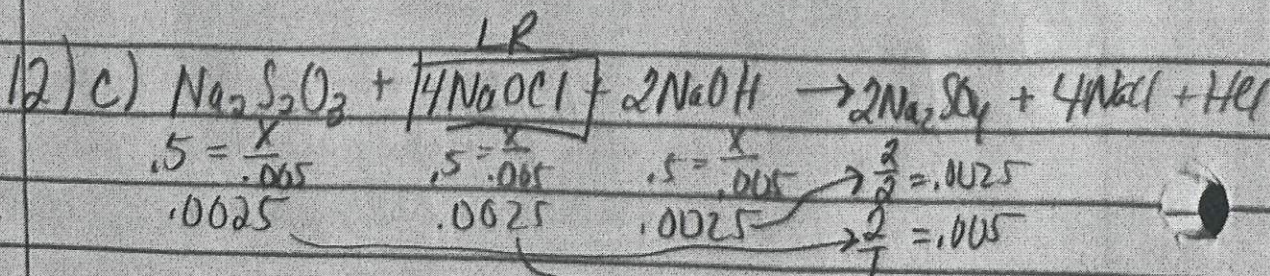 LR
12) c) Na₂S₂O₃ + 4NaOCl + 2NaOH → 2Na₂SO₄ + 4NaCl + HCl
.5 = x/.005 .5 = x/.005 .5 = x/.005 → 2/2 = .0025
.0025 .0025 .0025 → 2/1 = .005